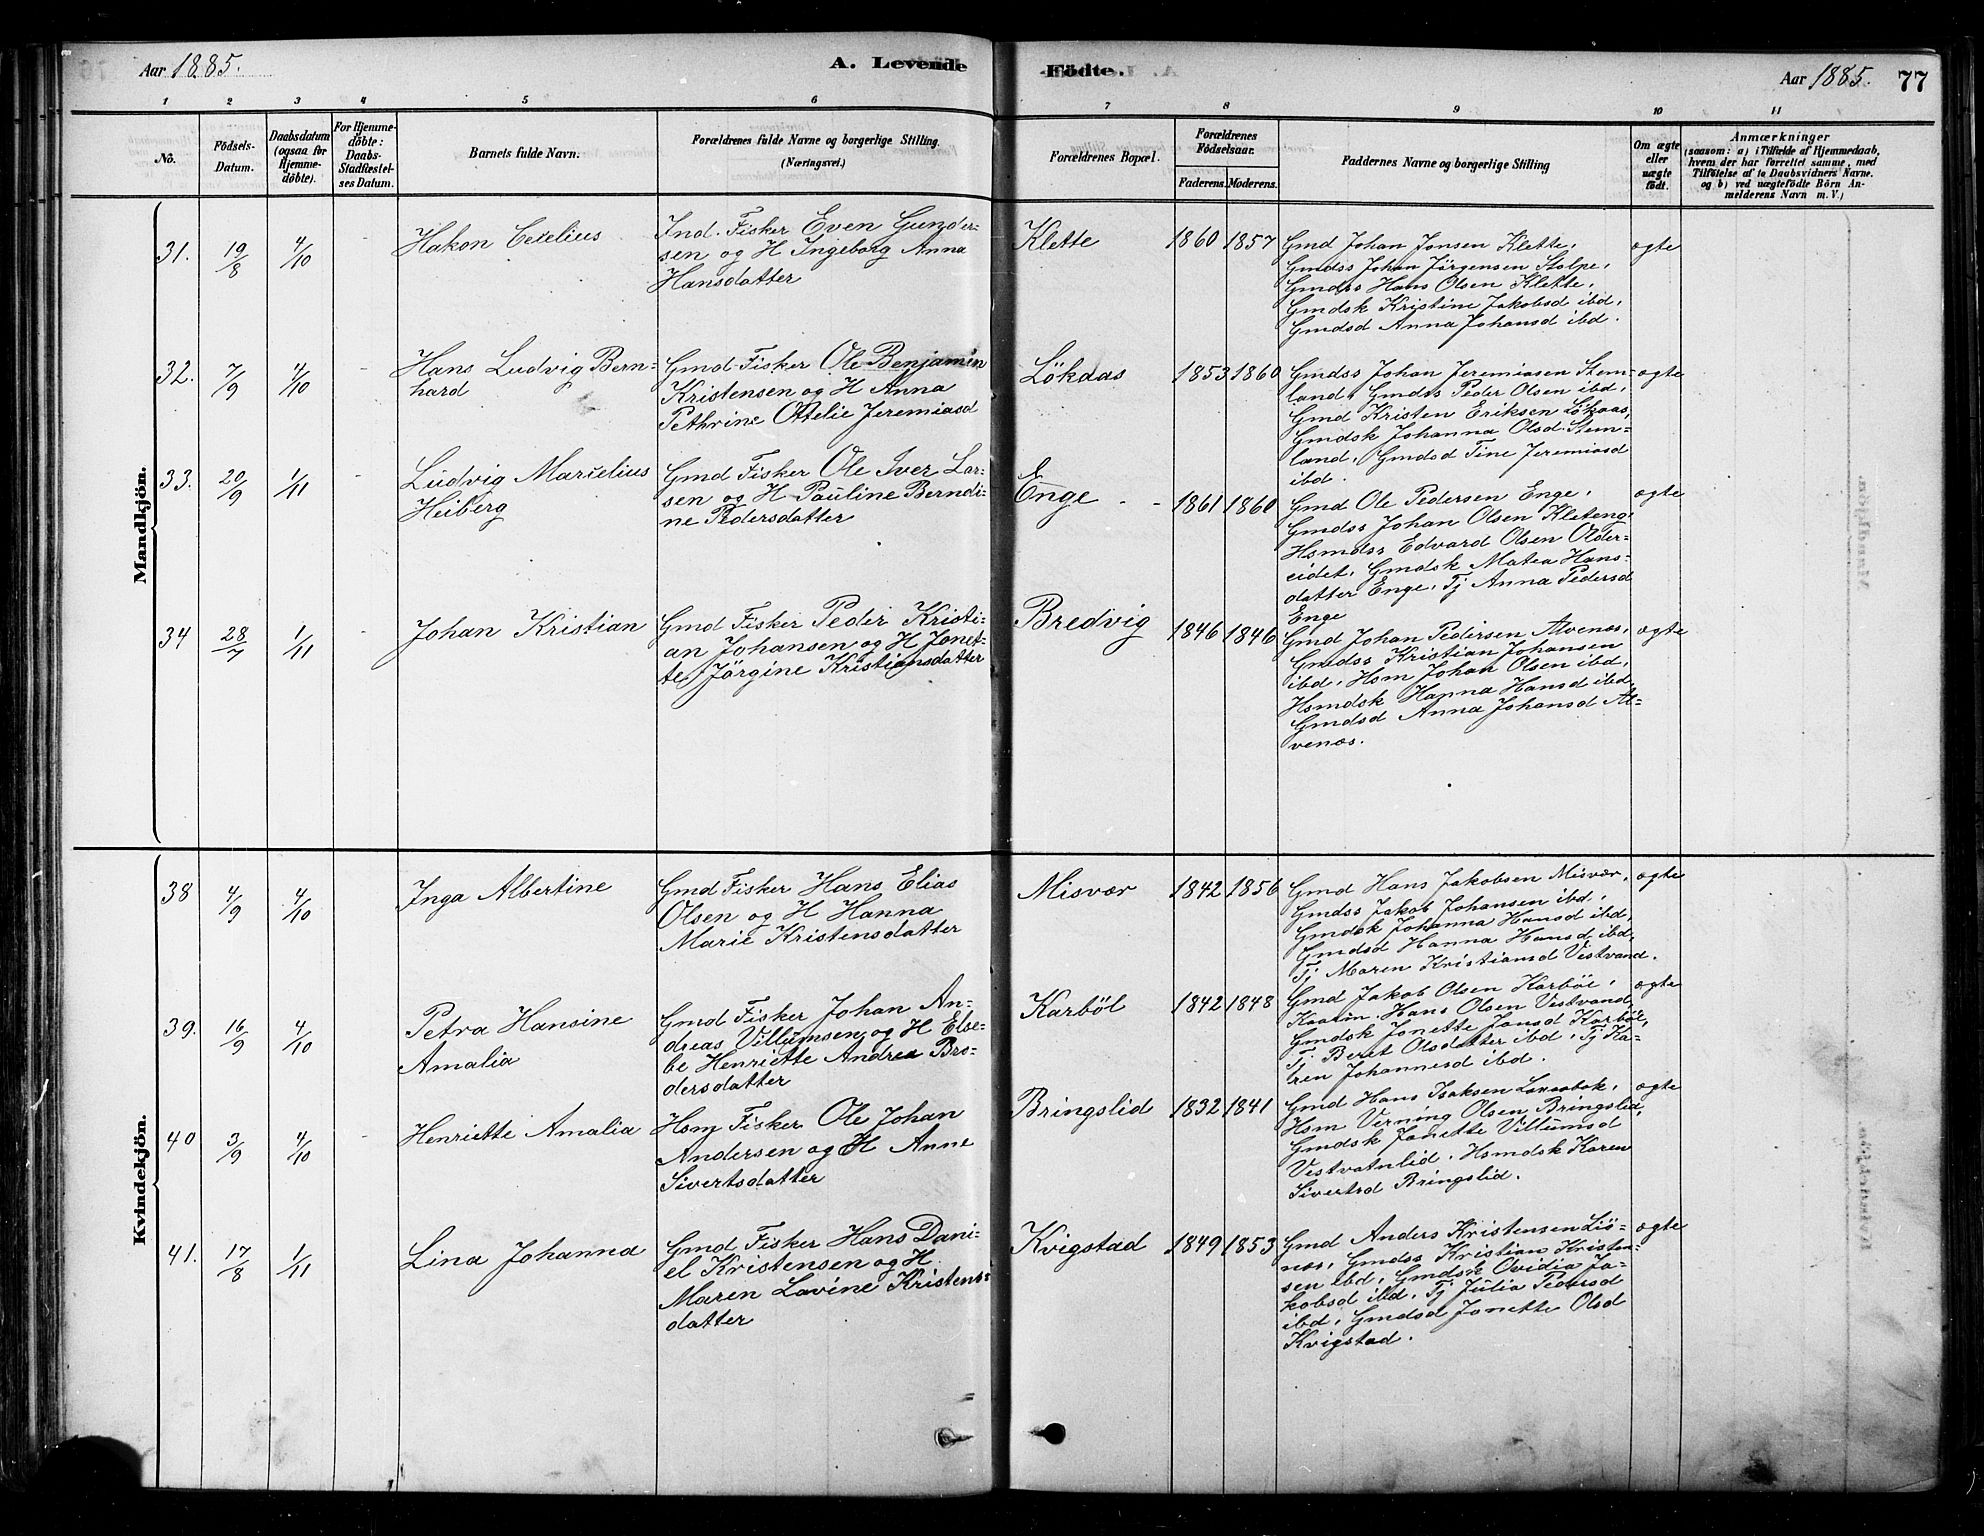 Aar 1885.
A. Levende
Födte.
Aar 1885. 77
1 2 3 4 5 6 7 8 9 10 11
No.
Födsels-
Datum.
Daabsdatum
(ogsaa for
Hjemme-
döbte).
For Hjemme-
döbte:
Daabs-
Stadfæstel-
ses Datum.
Barnets fulde Navn.
Forældrenes fulde Navne og borgerlige Stilling.
(Næringsvei.)
Forældrenes Bopæl.
Forældrenes
Födselsaar.
Faderens. Moderens.
Faddernes Navne og borgerlige Stilling
Om ægte
eller
uægte
födt.
Anmærkninger
(saasom: a) i Tilfælde af Hjemmedaab,
hvem der har forrettet samme, med
Tilföielse af to Daabsvidners Navne.
og b) ved uægtefödte Börn An-
melderens Navn m. V.)
Mandkjön.
31. 19/8 4/10 - Hakon Cecelius
Ind. Fisker Even Gunder-
sen og H Ingeborg Anna
Hansdatter
Klette 1860 1857
Gmd Johan Jonsen Klette,
Gmdss Johan Jörgensen Stolpe,
Gmdss Hans Olsen Klette,
Gmdsk Kristine Jakobsd ibd,
Gmdsd Anna Johansd ibd.
ægte
32. 7/9 4/10 - Hans Ludvig Bern-
hard
Gmd Fisker Ole Benjamin
Kristensen og H Anna
Pethrine Ottelie Jeremiasd
Lökaas 1853 1860
Gmdss Johan Jeremiasen Stem-
land, Gmdss Peder Olsen ibd,
Gmd Kristen Eriksen Lökaas,
Gmdsk Johanna Olsd Stem-
land, Gmdsd Tine Jeremiasd
ibd.
ægte
33. 20/9 1/11 - Ludvig Marselius
Heiberg
Gmd Fisker Ole Iver Lar-
sen og H Pauline Berndi-
ne Pedersdatter
Enge - - 1861 1860
Gmd Ole Pedersen Enge,
Gmdss Johan Olsen Kleteng,
Hsmdss Edvard Olsen Older-
eidet, Gmdsk Matea Hans-
datter Enge, Tj Anna Pedersd
Enge
ægte
34 28/7 1/11 - Johan Kristian
Gmd Fisker Peder Kristi-
an Johansen og H Jonet-
te Jörgine Kristiansdatter
Bredvig 1846 1846
Gmd Johan Pedersen Alvenæs,
Gmdss Kristian Johansen
ibd, Hsm Johan Olsen ibd,
Hsmdsk Hanna Hansd ibd,
Gmdsd Anna Johansd Al-
venæs.
ægte
Kvindekjön.
38 4/9 4/10 Inga Albertine
Gmd Fisker Hans Elias
Olsen og H Hanna
Marie Kristensdatter
Misvær 1842 1856
Gmd Hans Jakobsen Misvær,
Gmdss Jakob Johansen ibd,
Gmdsk Johanna Hansd ibd,
Gmdsd Hanna Hansd ibd,
Tj Maren Kristiansd Vestvand.
ægte
39. 16/9 4/10 Petra Hansine
Amalia
Gmd Fisker Johan An-
dreas Villumsen og H Else-
be Henriette Andrea Bro-
dersdatter
Karböl 1842 1848
Gmd Jakob Olsen Karböl,
Hans Olsen Vestvand,
Gmdsk Jonette Jonsd Karböl,
Tj. Beret Olsdatter ibd, Tj Ka-
ren Johannesd ibd.
ægte
40 3/9 4/10 - Henriette Amalia
Hsm Fisker Ole Johan
Andersen og H Anne
Sivertsdatter
Bringslid 1832 1841
Gmd Hans Isaksen
Hsm Verning Olsen Bringslid,
Gmdsk Jonette Villumsd
Vestvatnlid, Hsmdsk Karen
Sivertsd Bringslid.
ægte
41. 17/8 1/11 Lina Johanna
Gmd Fisker Hans Dani-
el Kristensen og H
Maren Lovine Kristens-
datter
Kvigstad 1849 1853
Gmd Anders Kristensen Liö-
næs, Gmdss Kristian Kristen-
sen ibd, Gmdsk Ovidia Ja-
kobsd ibd, Tj Julia Pedersd
ibd, Gmdsd Jonette Olsd
Kvigstad.
ægte